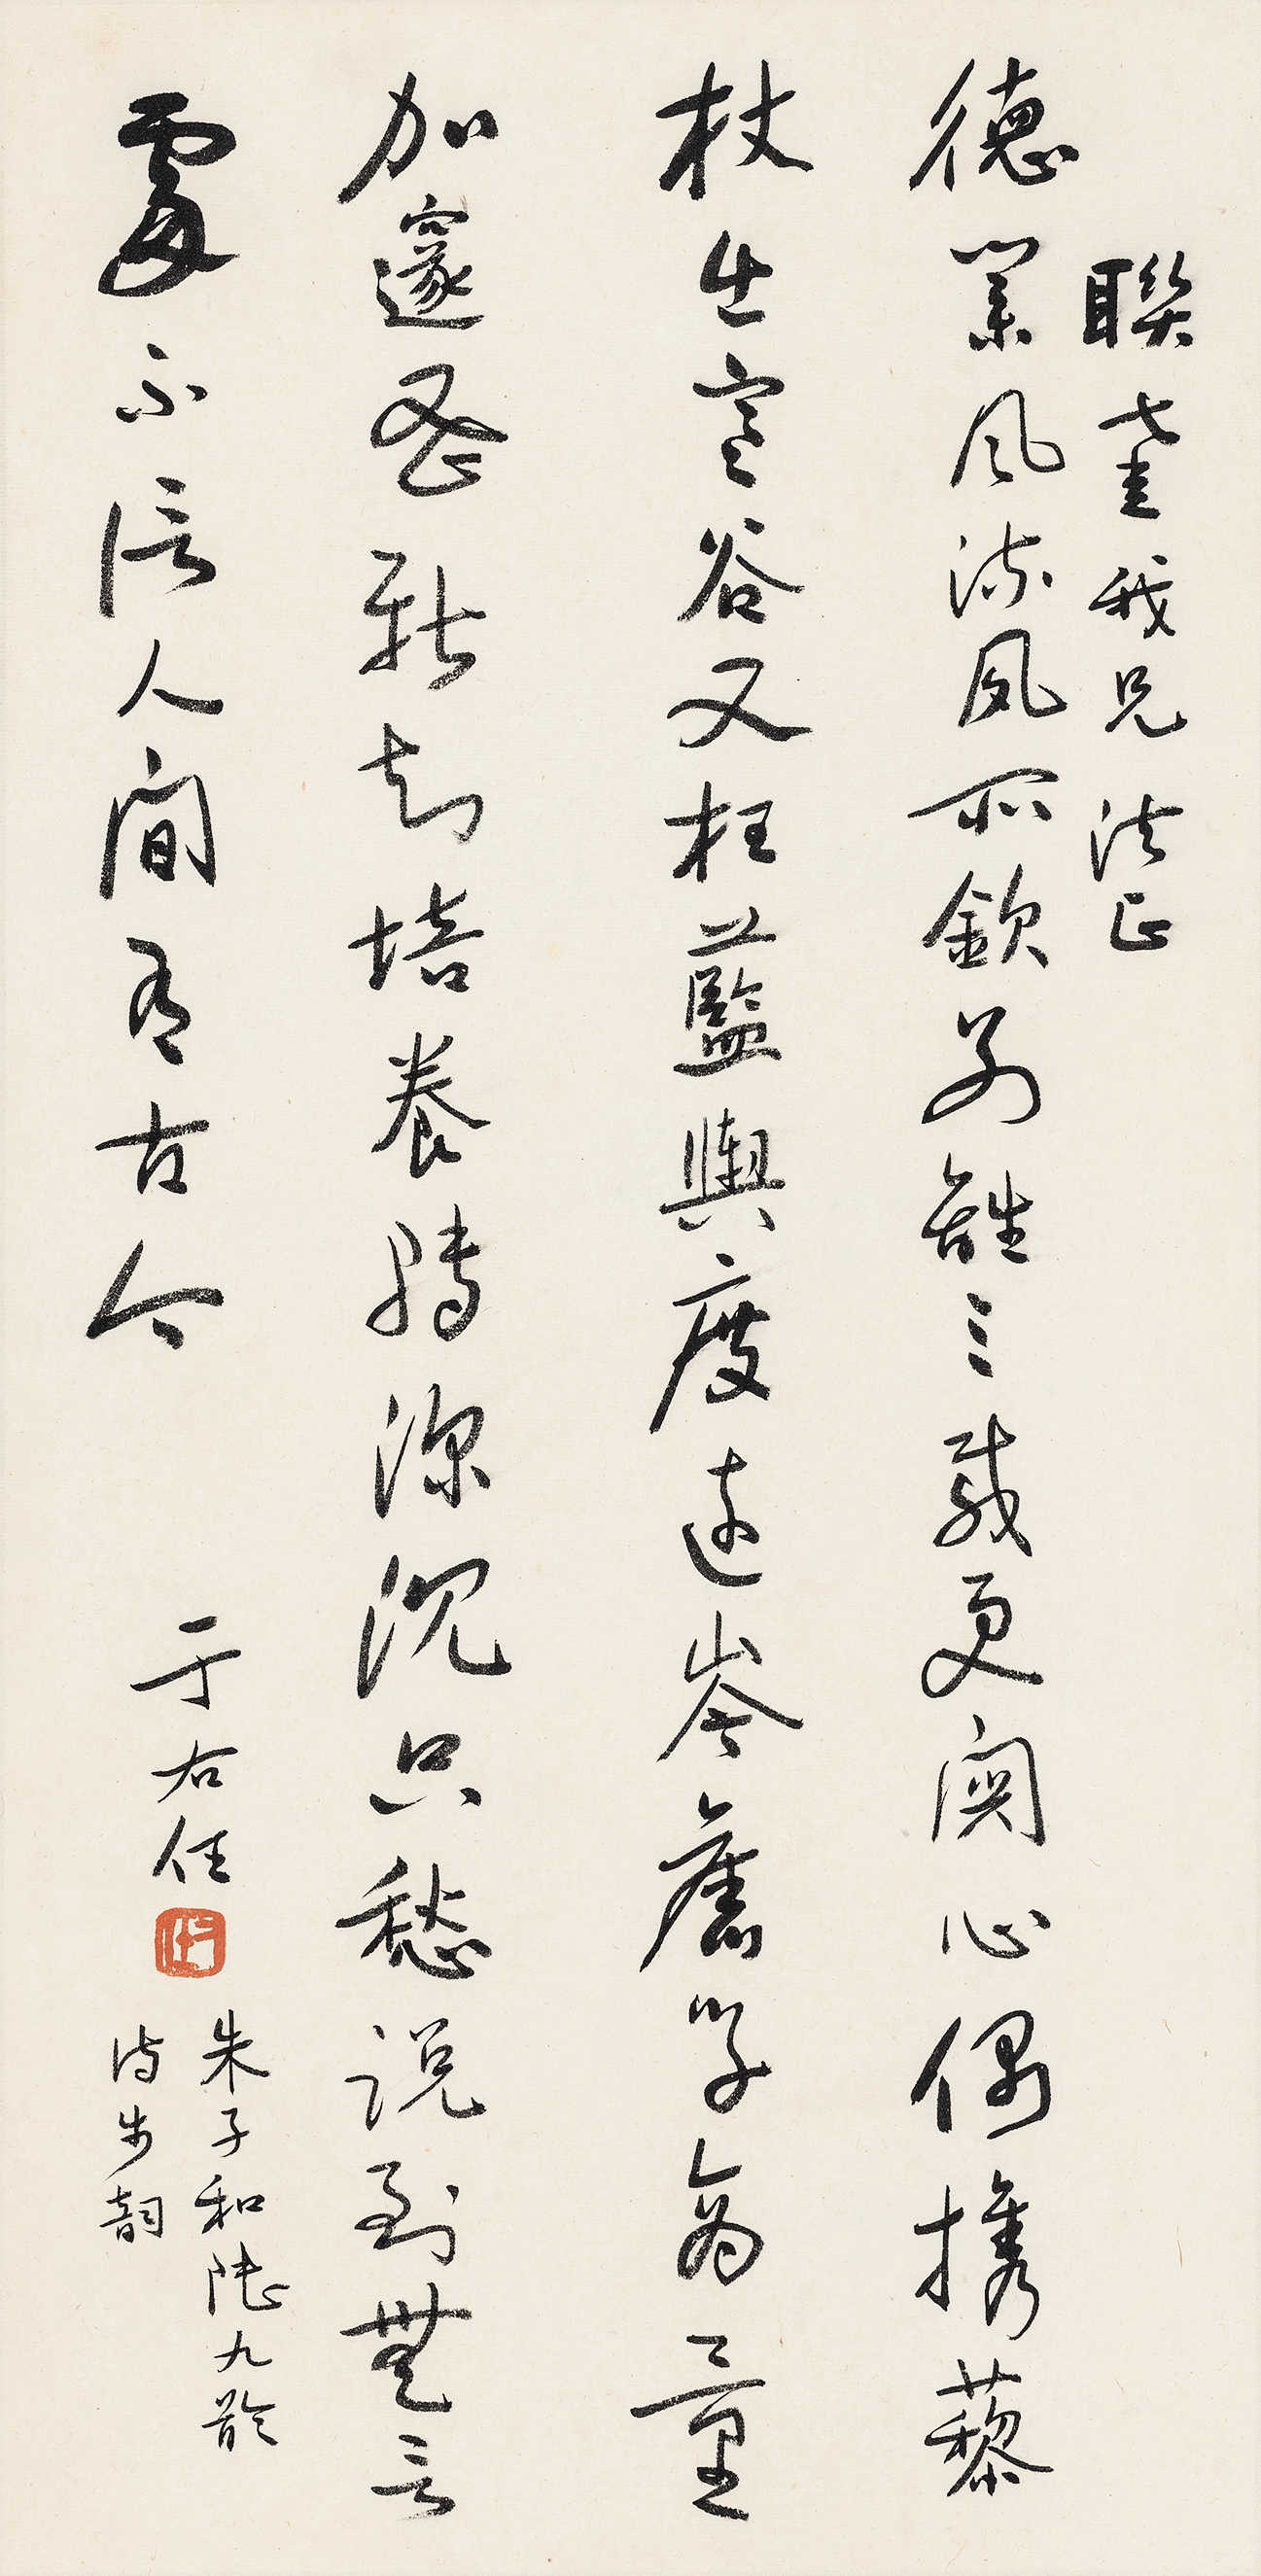 聯奎我兄法正
德業風流夙所欽別離三載更關心偶攜藜
杖出寒谷又枉藍輿度遠岑舊學商量
加邃密新知培養轉深沈只愁說到無言
處不信人間有古今
于右任
右任
朱子和陸九齡
詩步韻